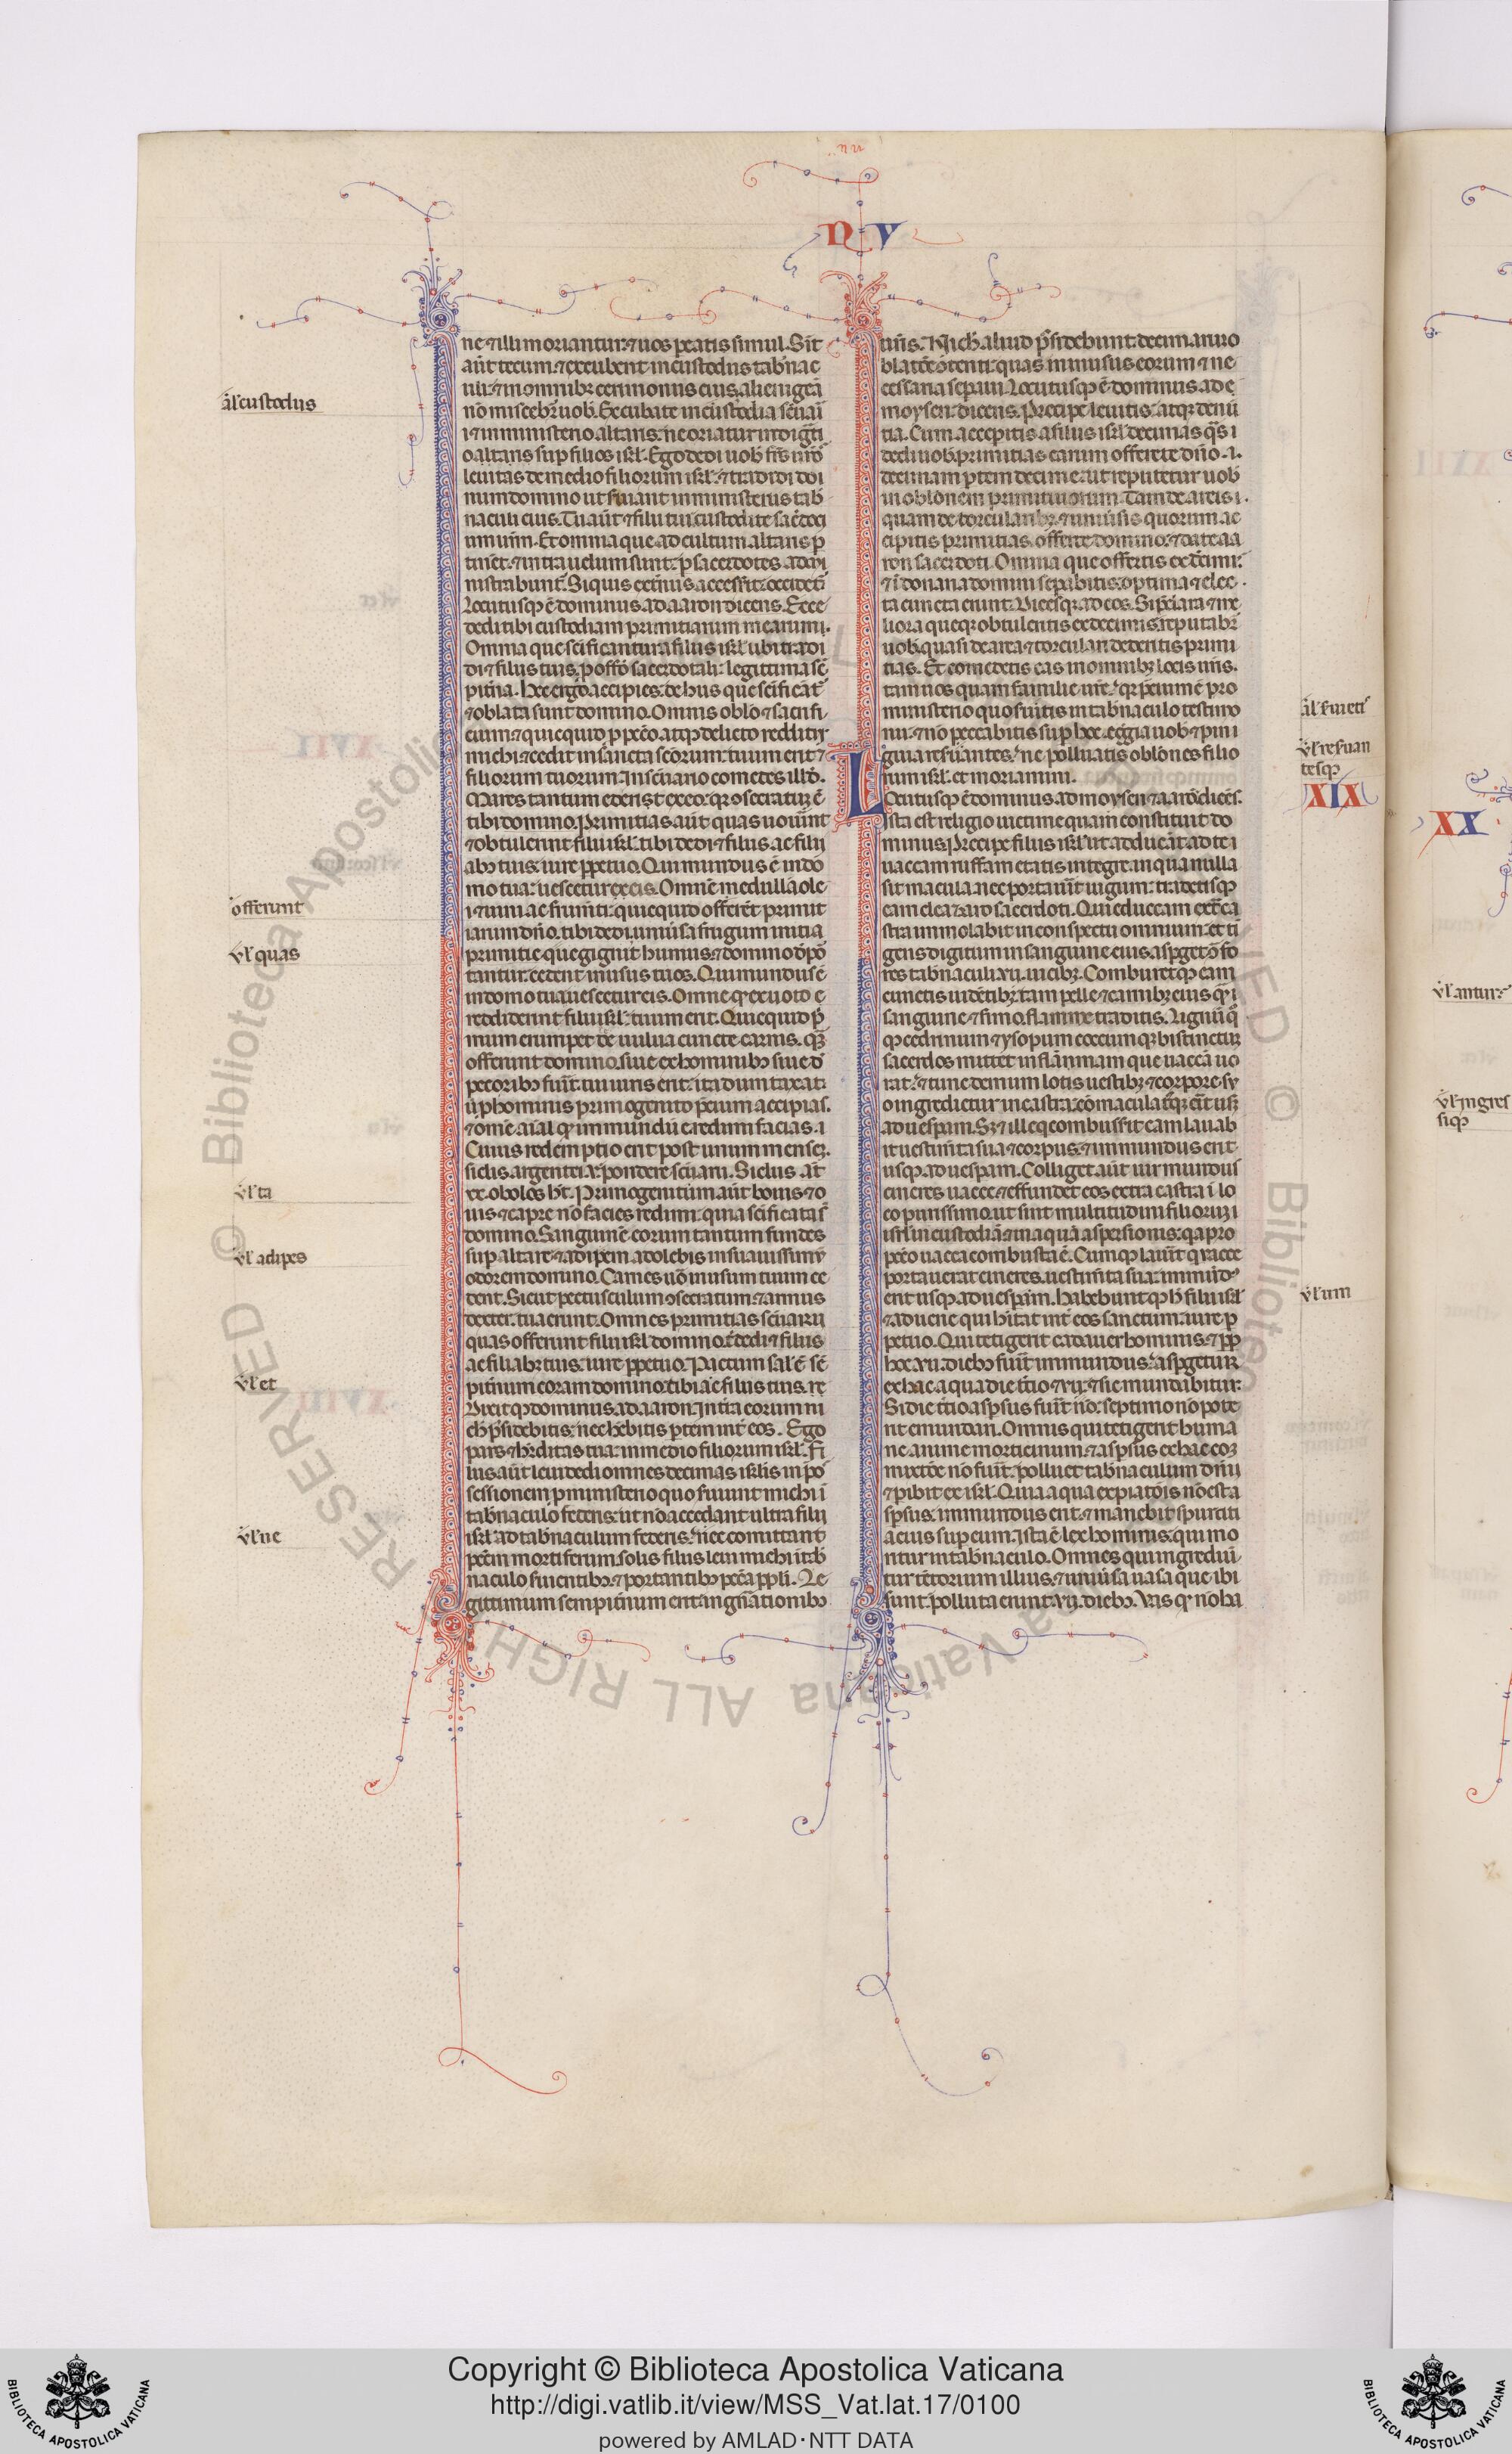 N V
ne ⁊ illi moriantur: ⁊ uos p̃eatis simul. Sīt
aūt tecum. ⁊ excubent in custodiis tab̃nac
uli: ⁊ in omnibꝫ cerimoniis eius. alienigeā
nō miscebit̃ uob̃. Excubate in custodia sc̃uaii
⁊ in ministerio altaris: ne oriatur indigñti
o altaris sup filios isrl̃. Ego dedi uob̃ fr̃s ur̃o
leuitas de medio filiorum isrl̃. ⁊ tradidi doi
num domino ut s̃uiant in ministeriis tab̃
naculi eius. Tu aūt ⁊ filii tui: custodite sac̃doci
um ur̃m. Et omnia que ad cultum altaris p̱
tinēt. ⁊ intra uelum sunt: p̱ sacerdotes admi
nistrabunt̃. Siquis extñus accesserit: occidet̃.
Locutusqꝫ ē dominus ad aaron dicens. Ecce
dedi tibi custodiam primitiarum mearum.
Omnia que sc̃ificantur a filiis isrl̃. tibi tradi
di ⁊ filiis tuis. p̱ offõ sacerdotali: legittima sē
pitñia. Hec ergo accipies: de hiis que sc̃ificāt̃
⁊ oblata sunt domino. Omnis obl̃o ⁊ sacrifi
cium ⁊ quicquid p̱ pc̃c̃o atqꝫ delicto redditur
michi ⁊ cedit in sancta sc̃orum: tuum erit ⁊
filiorum tuorum. In sc̃uario comedes illd̃.
Mares tantum edent ex eo: qꝫ ꝯsecratum ē
tibi domino. Primitias aūt quas uouerint
⁊ obtulerint filii isrl̃. tibi dedi ⁊ filiis ac filij
abꝫ tuis: iure p̱petuo. Qui mundus ē in do
mo tua: uescetur ex eis. Omnē medullā ole
i ⁊ uini ac frum̃ti: quicquid offerēt primit
iarum dño. tibi dedi. uniũsa frugum initia
primitie que gignit humus. ⁊ domino d̃po
tantur. cedent in usus tuos. Qui mundus ē
in domo tua uescetur eis. Omne qꝫ ex uoto
reddiderint filii isrl̃: tuum erit. Quicquid p̃
mum erumpet de uulua cuncte carnis. qꝫ
offerunt domino. siue ex hominibꝫ siue d̃
pecoribꝫ fuerit: tui iuris erit. ita dumtaxat:
ut p̱ hominis primogenito p̃cium accipias.
⁊ om̃e aīal qꝫ immundū ē redimi facias.
Cuius redemptio erit post unum mensem:
siclis argenti .v. pondere sc̃uarii. Siclus
.xx. obolos hr̃. Primogenitum aūt bouis ⁊ o
uis ⁊ capre nō facies redimi: quia sc̃ificata s̃
domino. Sanguinē eorum tantum fundes
sup altare: ⁊ adipem adolebis in suauissimū
odorem domino. Carnes uō in usum tuum ce
dent. Sicut pectusculum ꝯsecratum ⁊ armus
dexter: tua erunt. Omnes primitias sc̃uarii
quas offerunt filii isrl̃ domino. t̃ dedi ⁊ filiis
ac filiabꝫ tuis: iure p̱petuo. Pactum sal̃ ē sē
pitñum coram domino: tibi ac filiis tuis.
Dixitqꝫ dominus ad aaron. In tr̃a eorum ni
ch̃ p̃sidebitis: nec h̃ebitis p̱tem int̃ eos. Ego
pars ⁊ h̃editas tua: in medio filiorum isrl̃. Fi
liis aūt leui dedi omnes decimas isrl̃is in pos
sessionem p̱ ministerio quo s̃uiunt michi i
tab̃naculo federis: ut nō accedant ultra filij
isrl̃ ad tab̃naculum federis. nec comittant
pc̃c̃m mortiferum. solis filiis leui michi ī tab̃
naculo s̃uientibꝫ. ⁊ portantibꝫ pc̃c̃a pp̱li. Le
gittimum sempitñum erit in gñationibꝫ
ur̃is. Nich̃ aliud p̃sidebunt: decimarum o
blatōe ꝯtenti: quas in usus eorum ⁊ ne
cessaria sep̱aui. Locutusqꝫ ē dominus ad
moysen: dicens. Precipe leuitis: atqꝫ denū
tia. Cum accepitis a filiis isrl̃ decimas q̃s
dedi uob̃: primitias earum offerete dño. i.
decimam p̱tem decime. ut reputetur uob̃
in obl̃onem primitiuorum. Tam de areis
quam de torcularibꝫ. ⁊ uniũsis quorum ac
cipitis primitias. offerte domino: ⁊ date aa
ron sacerdoti. Omnia que offertis ex decimis
⁊ ī donaria domini sep̱abitis: optima ⁊ elec
ta cuncta erunt. Dicesqꝫ ad eos. Si p̃clara ⁊ me
liora queqꝫ obtuleritis ex decimis. reputabit̃
uob̃. quasi de area ⁊ torculari dederitis primi
tias. Et comedetis eas in omnibꝫ locis ur̃is.
tam uos quam familie ur̃e. qꝫ p̃cium ē pro
ministerio quo s̃uitis in tab̃naculo testimo
nii: ⁊ nō peccabitis sup hoc. egregia uob̃ ⁊ pin
guia res̃uantes. ne polluatis obl̃ones filio
rum isrl̃. et moriamini.
Locutusqꝫ ē dominus ad moysen ⁊ aarō: dicēs.
Ista est religio uictime quam constituit do
minus. Precipe filiis isrl̃ ut adducāt ad te
uaccam ruffam etatis integre. in qua nulla
sit macula. nec portauit iugum: tradetisqꝫ
eam eleazaro sacerdoti. Qui eductam extra ca
stra immolabit in conspectu omnium. et ti
gens digitum in sanguine eius. asp̱get ꝯ fo
res tab̃naculi .vij. uicibꝫ. Comburetqꝫ eam
cunctis uidētibꝫ. tam pelle ⁊ carnibꝫ eius qꝫ
sanguine ⁊ fimo. flamme traditis. Lignū q̃
qꝫ cedrinum ⁊ ysopum coccumqꝫ bis tinctum
sacerdos mittet in flāmam que uaccā uo
rat. ⁊ tunc demum lotis uestibꝫ ⁊ corpore su
o ingredietur in castra: cōmaculatusqꝫ erit usqꝫ
ad uesp̱am. Sꝫ ⁊ ille q̃ combusserit eam lauab
it uestim̃ta sua ⁊ corpus. ⁊ immundus erit
usqꝫ ad uesp̱am. Colliget aūt uir mundus
cineres uacce: ⁊ effundet eos extra castra ī lo
co purissimo. ut sint multitudini filiorum
isrl̃ in custodiā: ⁊ in aquā aspersionis. q̃ pro
pc̃c̃o uacca combusta ē. Cumqꝫ lauerit q̃ uacce
portauerat cineres. uestim̃ta sua: immūd9
erit usqꝫ ad uesp̱am. Habebuntqꝫ h̃ filii isrl̃
⁊ aduene qui hitāt int̃ eos sanctum: iure p̱
petuo. Qui tetigerit cadauer hominis. ⁊ pp̱
hoc .vij. diebꝫ fuerit immundus: asp̱getur
ex hac aqua die t̃cio ⁊ .vij. ⁊ sic mundabitur.
Si die t̃cio asp̱sus fuerit nō: septimo nō pote
rit emundari. Omnis qui tetigerit huma
ne anime morticinum. ⁊ asp̱sus ex hac com
mixtōe nō fuerit: polluet tab̃naculum dñi
⁊ p̱ibit ex isrl̃. Quia aqua expiatōis nō est a
sp̱sus: immundus erit. ⁊ manebit spurciti
a eius sup eum. Ista ē lex hominis. qui mo
ritur in tab̃naculo. Omnes qui ingrediū
tur tētorium illius. ⁊ uniũsa uasa que ibi
sunt: polluta erunt .vij. diebꝫ. Vas qꝫ nō ha
al̃ custodiis
offerunt
ul̃ quas
ul̃ ta
ul̃ adipes
ul̃ et
ul̃ ne
ul̃ res̃uan
tesqꝫ
XIX
ul̃ um
XX
ul̃ antur
ul̃ ingres
sqꝫ
RESERVED © Biblioteca Apostolica Vaticana ALL RIGHTS
Copyright © Biblioteca Apostolica Vaticana
http://digi.vatlib.it/view/MSS_Vat.lat.17/0100
powered by AMLAD·NTT DATA
BIBLIOTECA APOSTOLICA VATICANA
BIBLIOTECA APOSTOLICA VATICANA